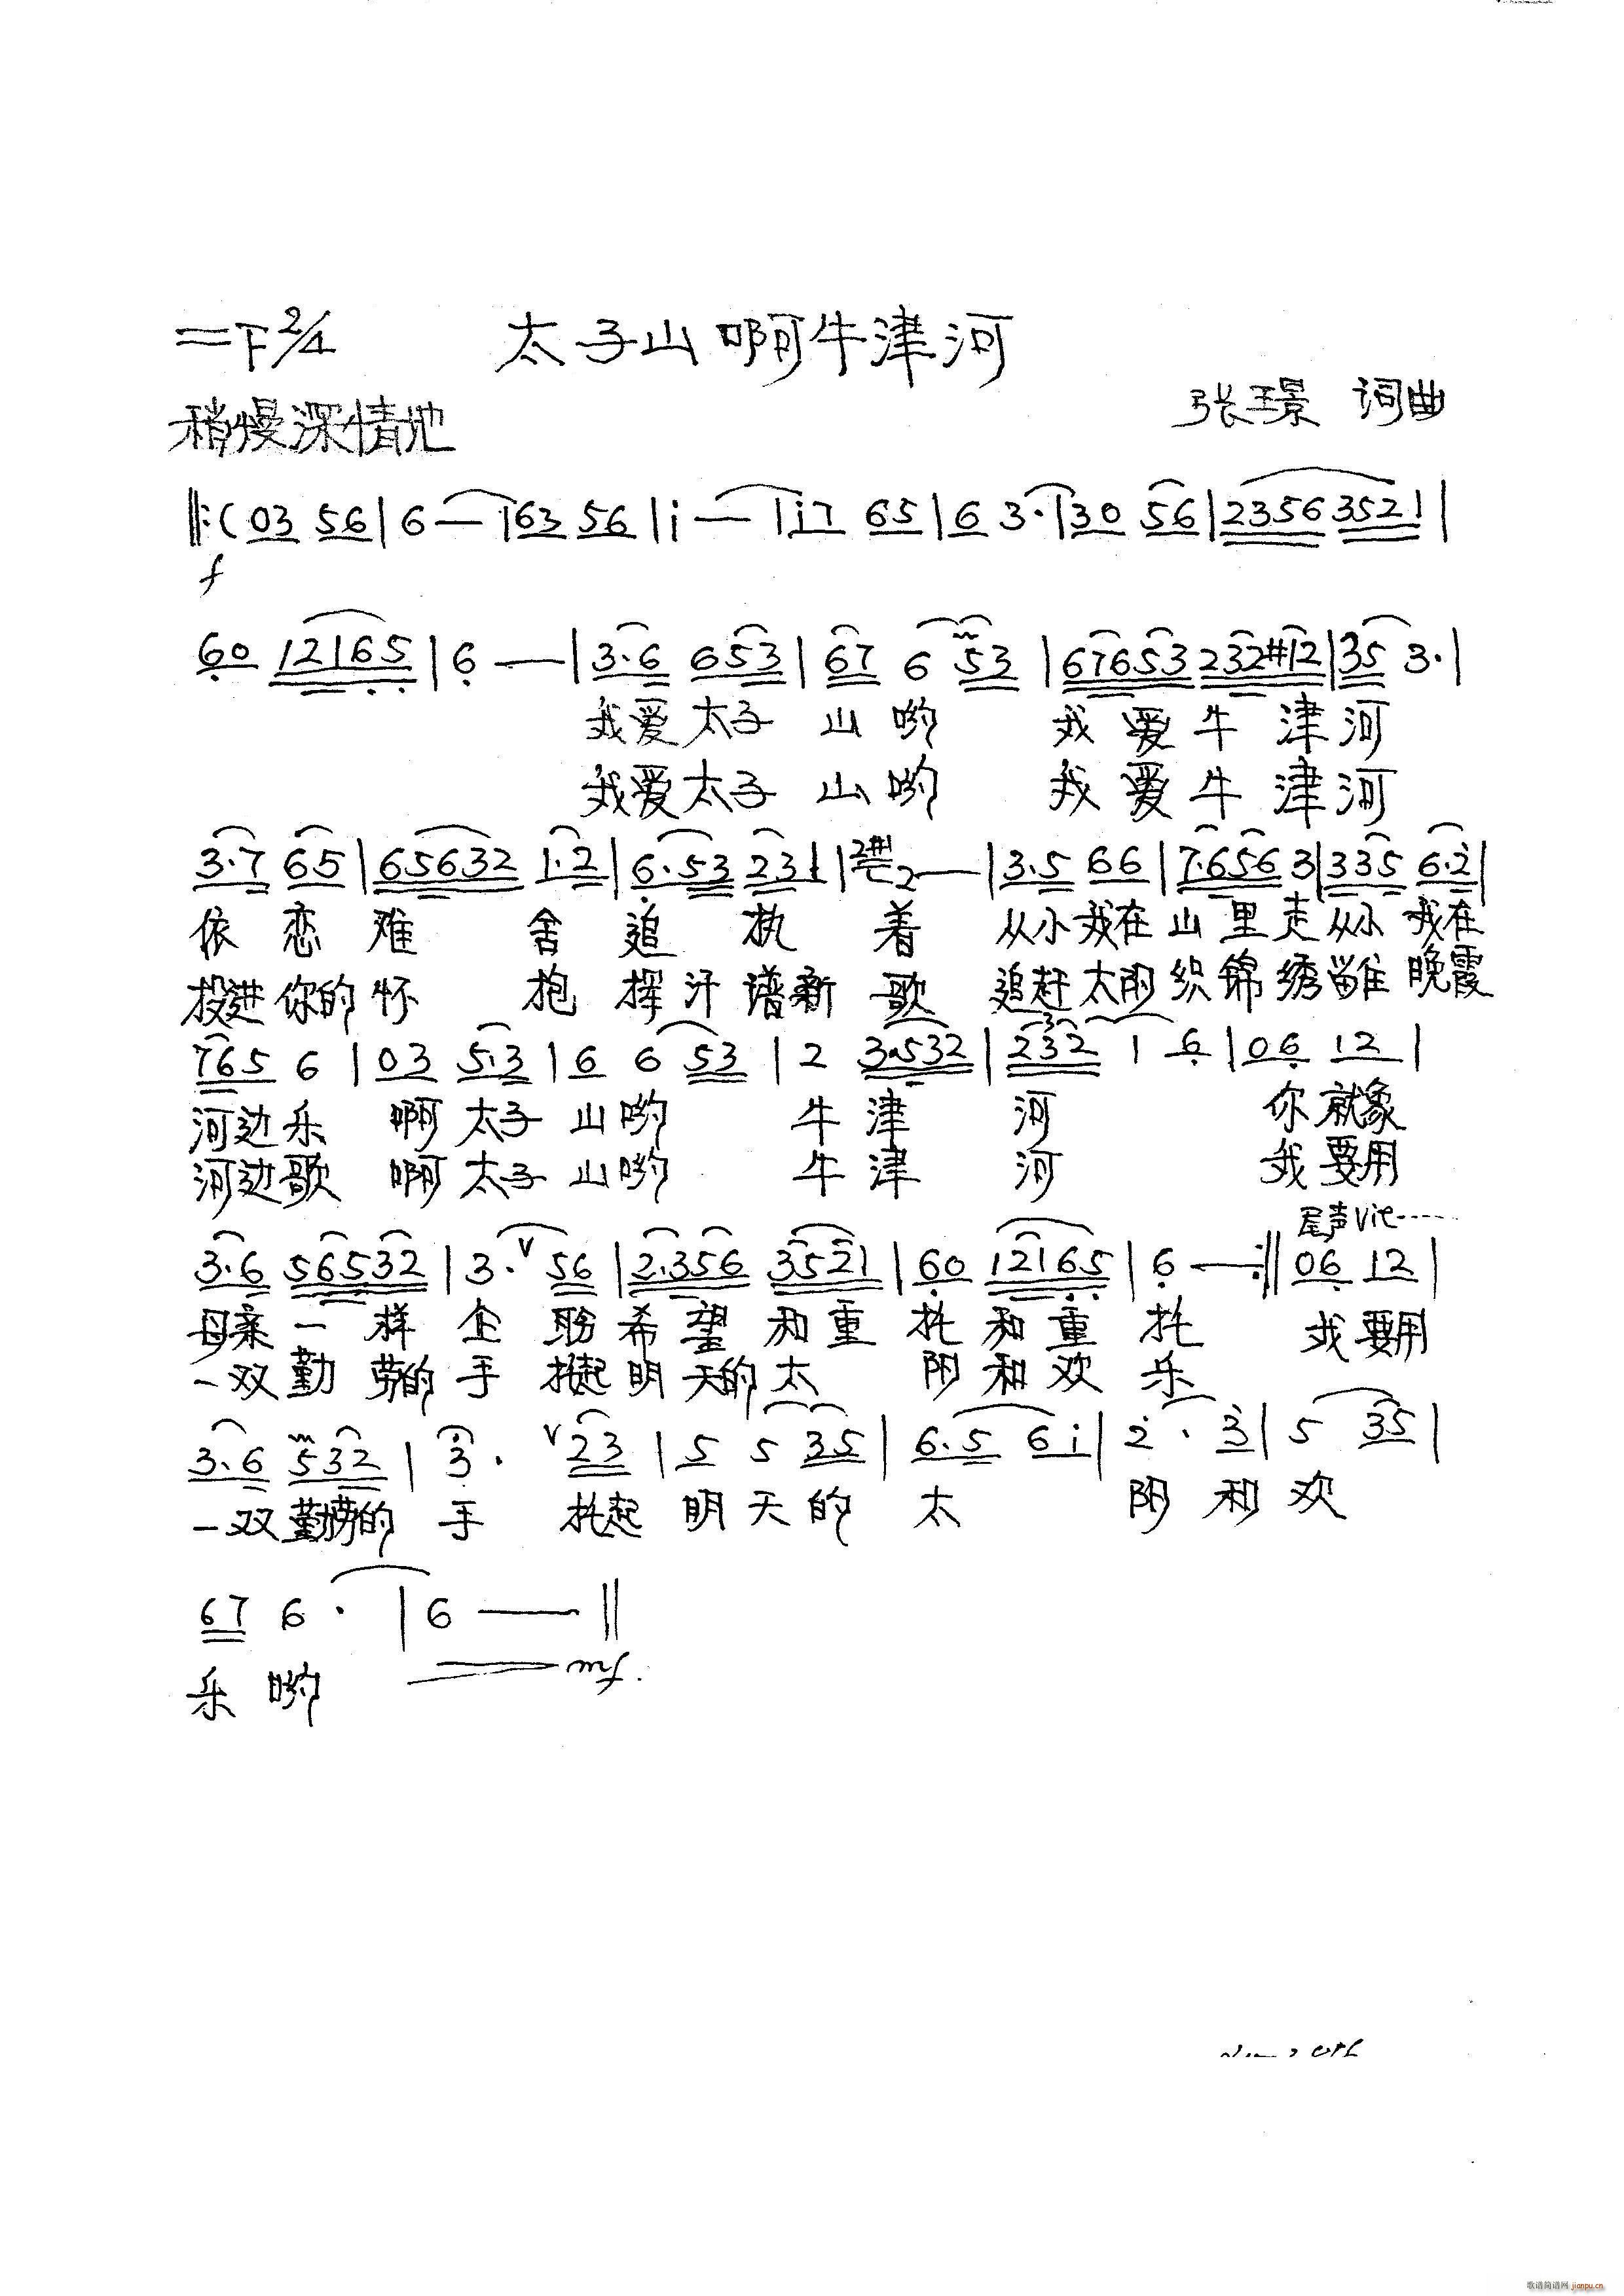 =F 2/4 太子山啊牛津河
张璟 词曲
稍慢深情地
‖:( 03 56 | 6 — | 63 56 | i — | i7 65 | 6 3· | 30 56 | 2356 3521 |
f
60 12165 | 6 — | 3·6 653 | 67 6 53 | 67653 232#12 | 35 3· |
我爱太子 山 哟 我 爱 牛 津 河
我爱太子 山 哟 我 爱 牛 津 河
3·7 65 | 65632 1·2 | 6·53 231 | 2#1 2 — | 3·5 66 | 7·656 3 | 335 6·2 |
依 恋 难 舍 追 执 着 从小我在 山 里 走 从小 我在
投进你的 怀 抱 挥 汗 谱新 歌 追赶太阳 织 锦 绣 晚霞
765 6 | 03 5·3 | 6 6 53 | 2 3·532 | 3 232 1 6 | 06 12 |
河边乐 啊 太子 山 哟 牛 津 河 你 就象
河边歌 啊 太子 山 哟 牛 津 河 我 要用
尾声Vie-----
3·6 56532 | 3· V 56 | 2·356 3521 | 60 12165 | 6 — :‖ 06 12 |
母亲 一 样 企 盼 希 望 和 重 托 和 重 托 我 要用
一双 勤 劳的 手 托起 明 天的 太 阳 和 欢 乐
3·6 532 | 3· V 23 | 5 5 35 | 6·5 6i | 2 · 3 | 5 35 |
一双 勤劳的 手 托起 明 天 的 太 阳 和 欢
67 6 · | 6 — ‖
mf.
乐 哟
歌谱简谱网 jianpu.cn